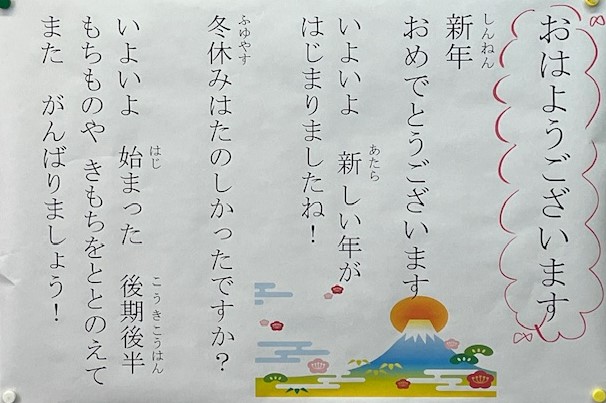 おはようございます
新年
しんねん
おめでとうございます
いよいよ 新しい年が
あたら
はじまりましたね!
冬休みはたのしかったですか?
ふゆやす
いよいよ 始まった 後期後半
はじ こうきこうはん
もちものや きもちをととのえて
また がんばりましょう!